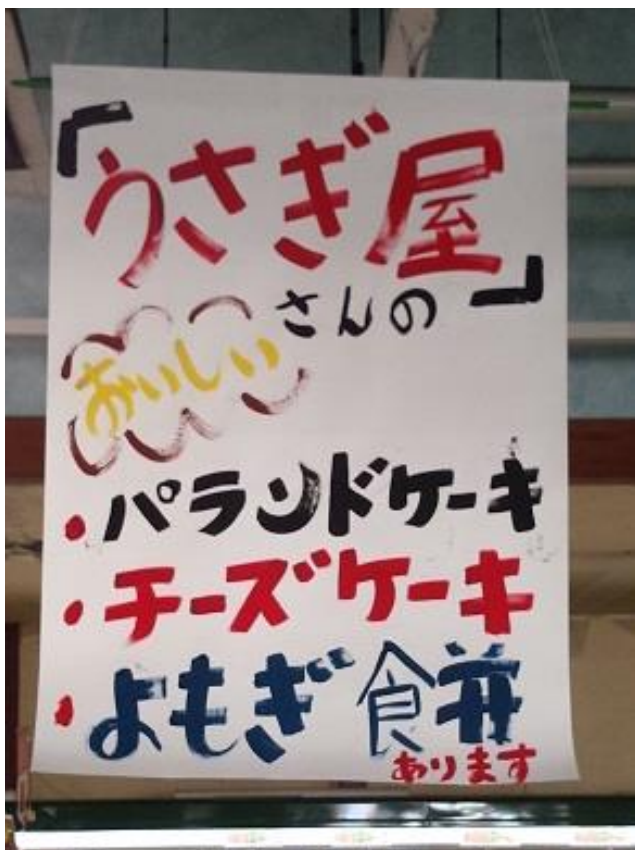 「うさぎ屋」
さんの
おいしい
・パランドケーキ
・チーズケーキ
・よもぎ餅
あります